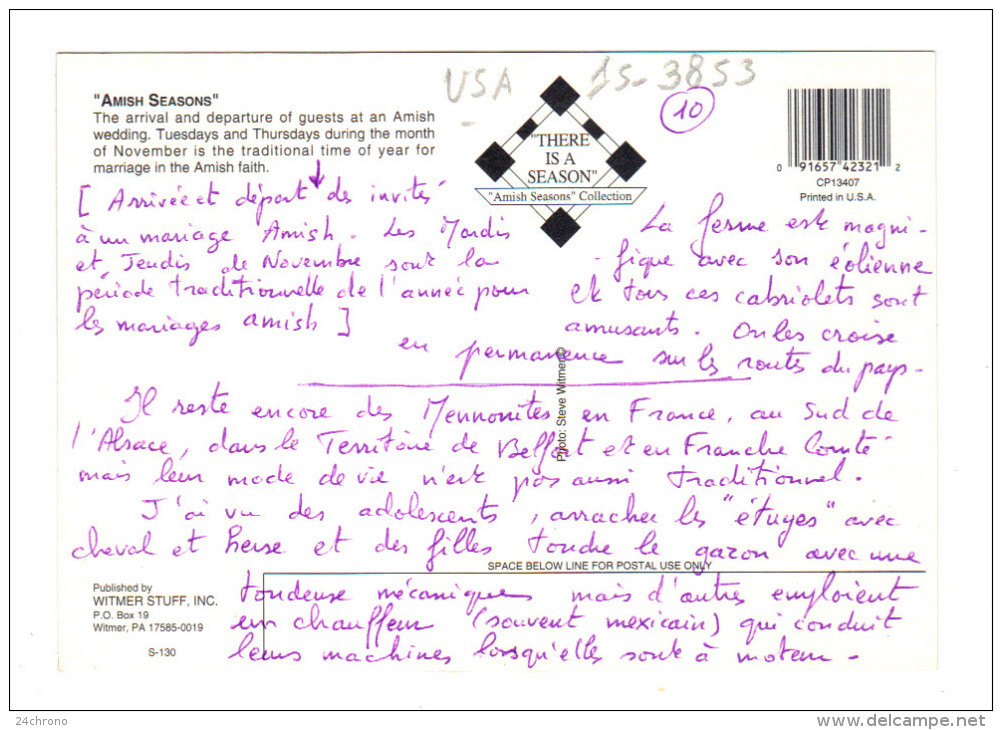 USA 15-3853
10
"AMISH SEASONS"
The arrival and departure of guests at an Amish
wedding. Tuesdays and Thursdays during the month
of November is the traditional time of year for
marriage in the Amish faith.
"THERE
IS A
SEASON"
"Amish Seasons" Collection
0 91657 42321 2
CP13407
Printed in U.S.A.
[ Arrivée et départ des invités
à un mariage Amish. Les Mardis
et Jeudis de Novembre sont la
période traditionnelle de l'année pour
les mariages amish ]
La ferme est magni-
fique avec son éolienne
et tous ces cabriolets sont
amusants. On les croise
en permanence sur les routes du pays-
Il reste encore des Mennonites en France, au Sud de
l'Alsace, dans le Territoire de Belfort et en Franche Comté
mais leur mode de vie n'est pas aussi traditionnel.
J'ai vu des adolescents, arracher les "étuges" avec
cheval et herse et des filles tondre le gazon avec une
tondeuse mécanique mais d'autres emploient
un chauffeur (souvent mexicain) qui conduit
leurs machines lorsqu'elles sont à moteur-
Photo: Steve Witmer©
SPACE BELOW LINE FOR POSTAL USE ONLY
Published by
WITMER STUFF, INC.
P.O. Box 19
Witmer, PA 17585-0019
S-130
24chrono
delcampe.net